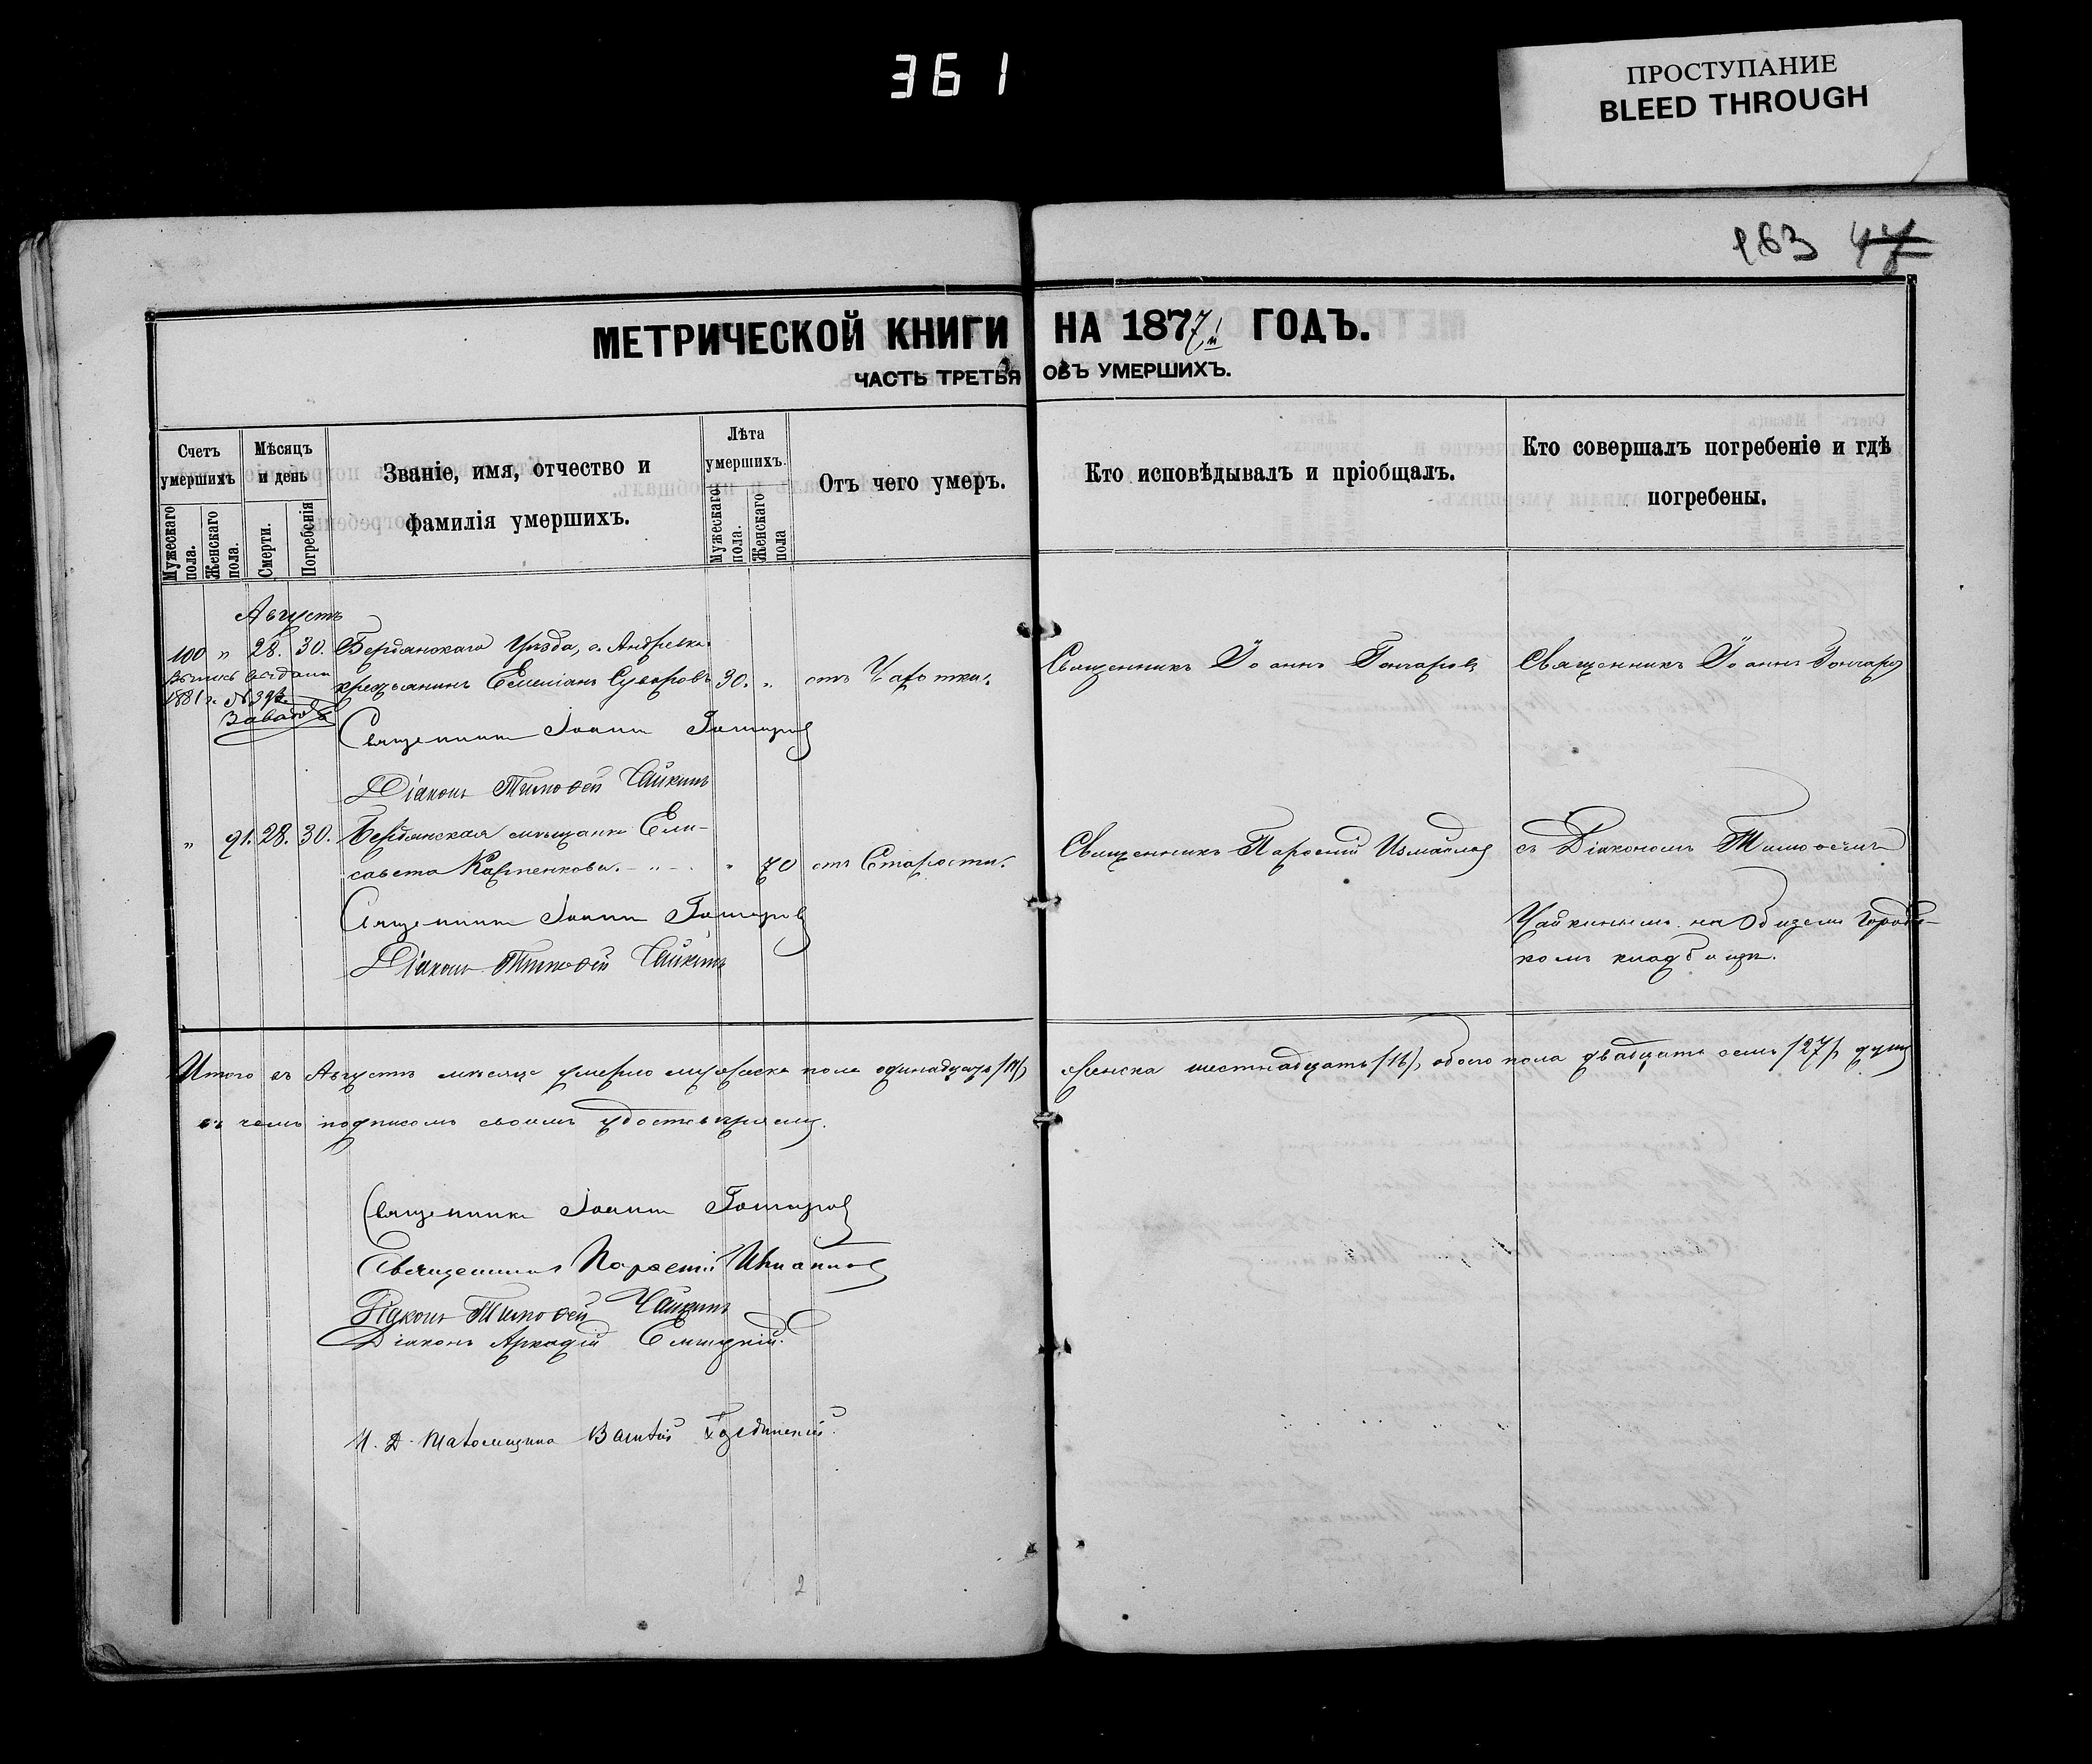 361
ПРОСТУПАНИЕ
BLEED THROUGH
163 47
МЕТРИЧЕСКОЙ КНИГИ НА 1877й ГОДЪ.
ЧАСТЬ ТРЕТЬЯ ОБЪ УМЕРШИХЪ.
Счетъ умершихъ
Мужескаго пола.
Женскаго пола.
Мѣсяцъ и день
Смерти.
Погребенія
Званіе, имя, отчество и
фамилія умершихъ.
Лѣта умершихъ.
Мужескаго пола.
Женскаго пола
Отъ чего умеръ.
Кто исповѣдывалъ и пріобщалъ.
Кто совершалъ погребеніе и гдѣ
погребены.
Августъ
100 " 28. 30. Бердянскаго Уѣзда, с. Андреевки
крестьянинъ Емеліанъ Суворовъ 30. " отъ Чахотки. Священникъ Іоаннъ Гончаровъ Священникъ Іоаннъ Гончаровъ
выпись выдана
1881 г. №
Священникъ Іоаннъ Гончаровъ
Діаконъ Тимоѳей Чайкинъ
" 91. 28. 30. Бердянская мѣщанка Ели-
савета Карпенкова. " 70 отъ Старости. Священникъ Парѳеній Измайловъ съ Діакономъ Тимоѳеемъ
Священникъ Іоаннъ Гончаровъ
Діаконъ Тимоѳей Чайкинъ
Чайкинымъ на Общемъ Городс-
комъ кладбищѣ.
Итого въ Августѣ мѣсяцѣ умерло мужеска пола одинадцать /11/, женска шестнадцать /16/, обоего пола двадцать семь /27/ душъ
въ чемъ подписомъ своимъ удостовѣряемъ.
Священникъ Іоаннъ Гончаровъ
Священникъ Парѳеній Измайловъ
Діаконъ Тимоѳей Чайкинъ
Діаконъ Аркадій
И. Д. Псаломщика
2